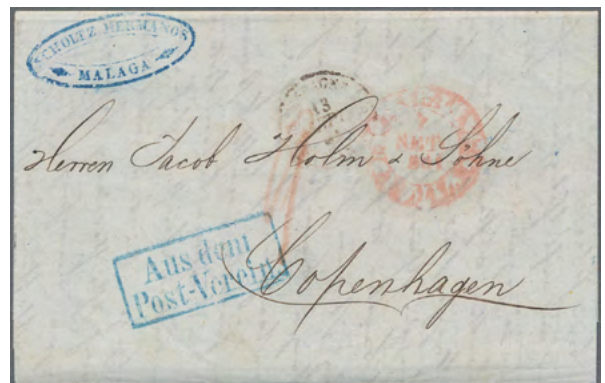 SCHOLTZ HERMANOS
MALAGA
13
SET
Herren Jacob Holm & Söhne
Aus dem
Post-Verein
Copenhagen